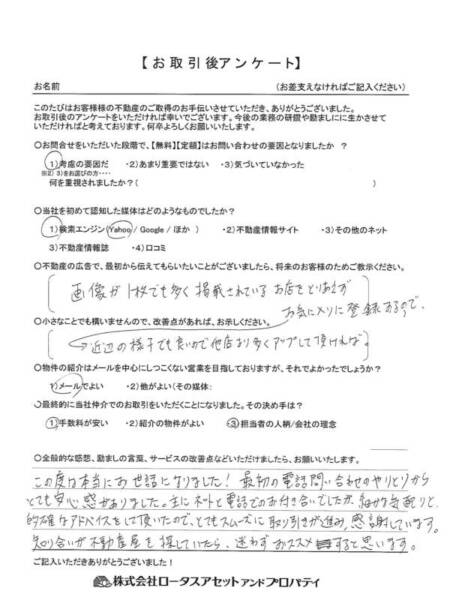 【お取引後アンケート】
お名前　　　　(お差支えなければご記入ください)
このたびはお客様様の不動産のご取得のお手伝いさせていただき、ありがとうございました。
お取引後のアンケートをいただければ幸いでございます。今後の業務の研鑽や励ましにに生かさせて
いただければと考えております。何卒よろしくお願いいたします。
○お問合せをいただいた段階で、【無料】【定額】はお問い合わせの要因となりましたか ？
1)考慮の要因だ ・2)あまり重要ではない ・3)気づいていなかった
※2) 3)をお選びの方・・・
何を重視されましたか？(　　　　)
○当社を初めて認知した媒体はどのようなものでしたか？
1)検索エンジン(Yahoo / Google / ほか ) ・2)不動産情報サイト ・3)その他のネット
3)不動産情報誌 ・4)口コミ
○不動産の広告で、最初から伝えてもらいたいことがございましたら、将来のお客様のためご教示ください。
画像が1枚でも多く掲載されているお店をとりあえず
お気に入りに登録するので、
○小さなことでも構いませんので、改善点があれば、お示しください。
近辺の様子でも良いので他店より多くアップして頂ければ。
○物件の紹介はメールを中心にしつこくない営業を目指しておりますが、それでよかったでしょうか？
1)メールでよい ・2)他がよい(その媒体:
○最終的に当社仲介でのお取引をいただくことになりました。その決め手は？
1)手数料が安い ・2)紹介の物件がよい ・3)担当者の人柄/会社の理念
○全般的な感想、励ましの言葉、サービスの改善点などいただけましたら、お願いいたします。
この度は本当にお世話になりました！最初の電話問い合わせのやりとりから
とても安心感がありました。主にネットと電話でのお付き合いでしたが、細かな気配りと、
的確なアドバイスをして頂いたので、とてもスムーズに取り引きが進み、感謝しています。
知り合いが不動産屋を探していたら、迷わずおススメすると思います。
ご記入いただきありがとうございました！
株式会社ロータスアセットアンドプロパティ